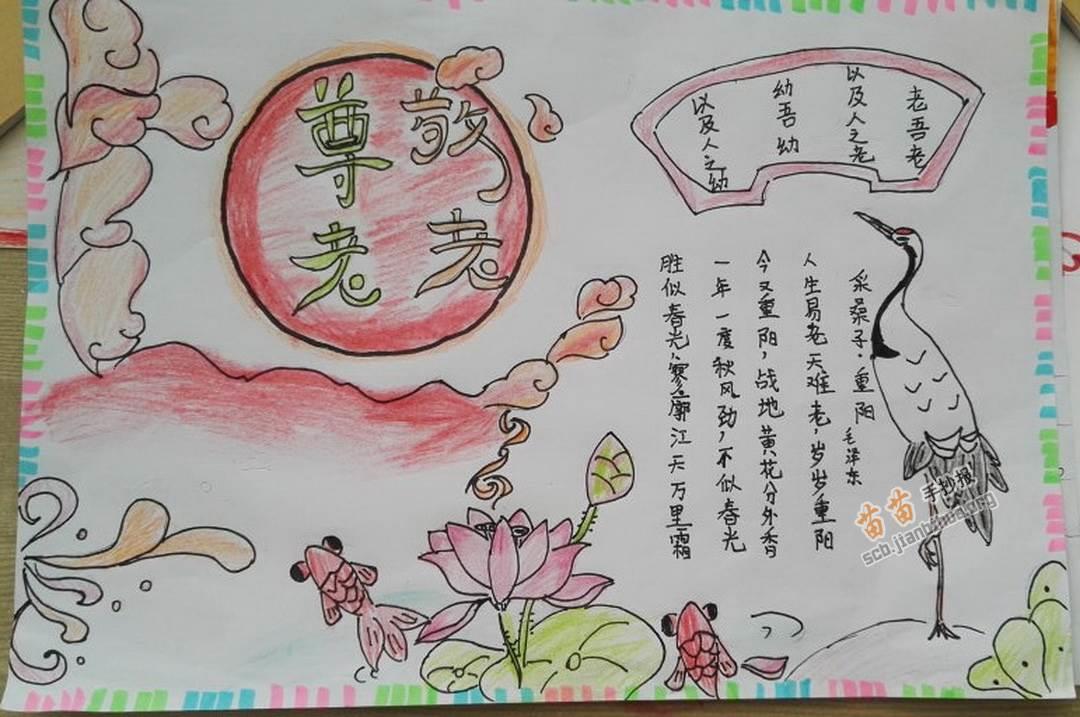 尊老
敬老
老吾老
以及人之老
幼吾幼
以及人之幼
采桑子·重阳
毛泽东
人生易老天难老,岁岁重阳
今又重阳,战地黄花分外香
一年一度秋风劲,不似春光
胜似春光,寥廓江天万里霜
苗苗手抄报
scb.jianbihua.org